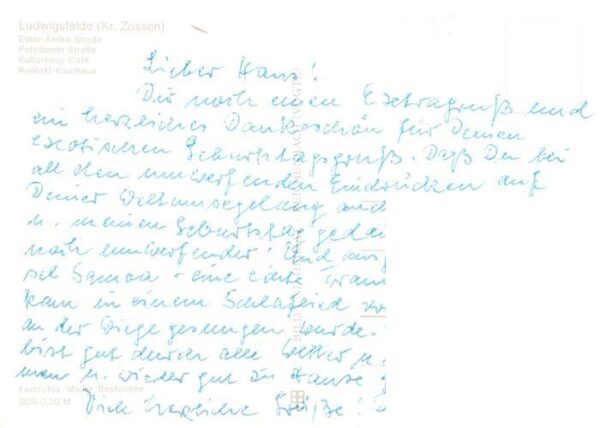 Ludwigsfelde (Kr. Zossen)
Etkar-André-Straße
Potsdamer Straße
Kulturhaus-Café
Kontakt-Kaufhaus
Lieber Hans!
Dir noch einen Extragruß und
ein herzliches Dankeschön für Deinen
exotischen Geburtstagsgruß. Daß Du bei
all den umwerfenden Eindrücken auf
Deiner Weltumsegelung
u. meinen Geburtstag
noch umwerfender! Und
Samoa - eine
kam in einem Schlaflied
an der Wiege gesungen wurde.
bist gut durch alle Wetter
u. wieder gut zu Hause
Farbfotos: Müller, Bestensee
DDR 0,20 M
Dich herzliche Grüße!